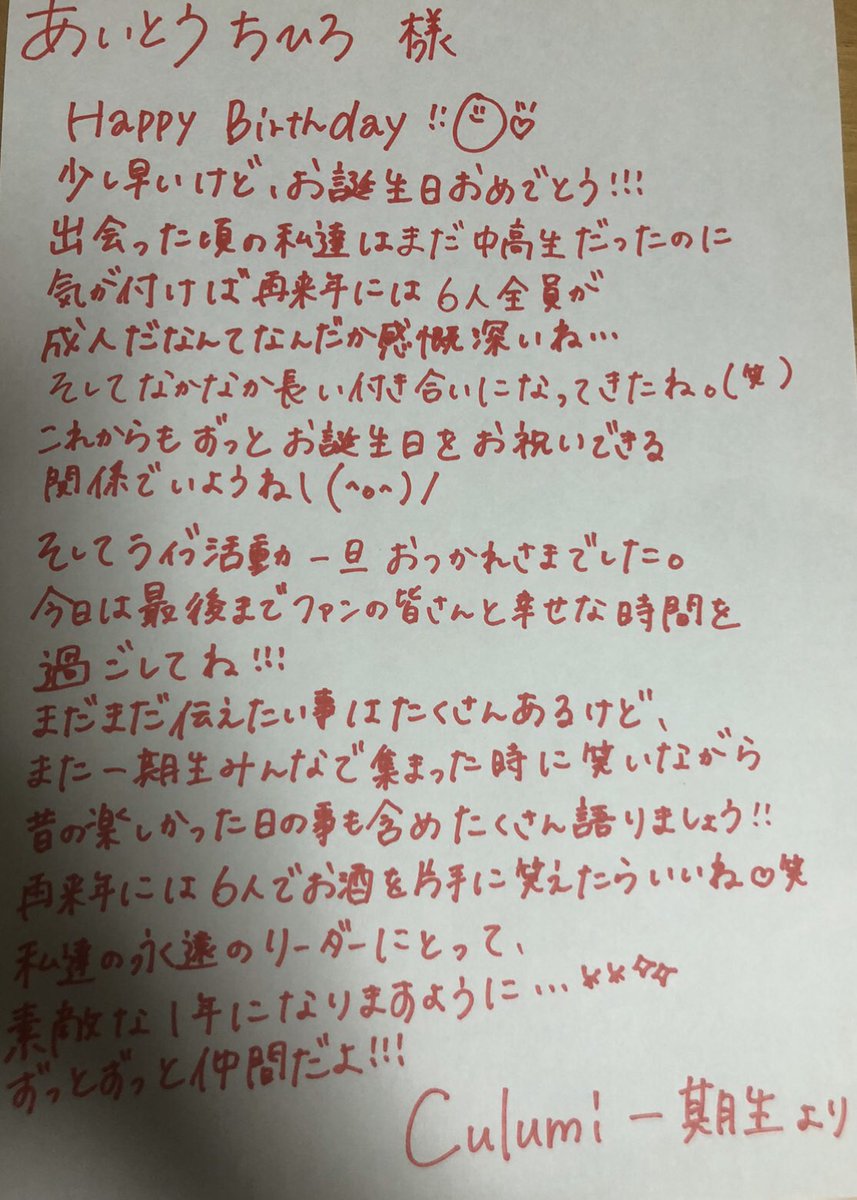 あいとうちひろ 様
Happy Birthday!!
少し早いけど、お誕生日おめでとう!!!
出会った頃の私達はまだ中高生だったのに
気が付けば再来年には6人全員が
成人だなんてなんだか感慨深いね…
そしてなかなか長い付き合いになってきたね。(笑)
これからもずっとお誕生日をお祝いできる
関係でいようね\(^o^)/
そしてライブ活動一旦おつかれさまでした。
今日は最後までファンの皆さんと幸せな時間を
過ごしてね!!!
まだまだ伝えたい事はたくさんあるけど、
また一期生みんなで集まった時に笑いながら
昔の楽しかった日の事も含めたくさん語りましょう!!
再来年には6人でお酒を片手に笑えたらいいね♡笑
私達の永遠のリーダーにとって、
素敵な1年になりますように…☆☆☆☆
ずっとずっと仲間だよ!!!
Culumi一期生より